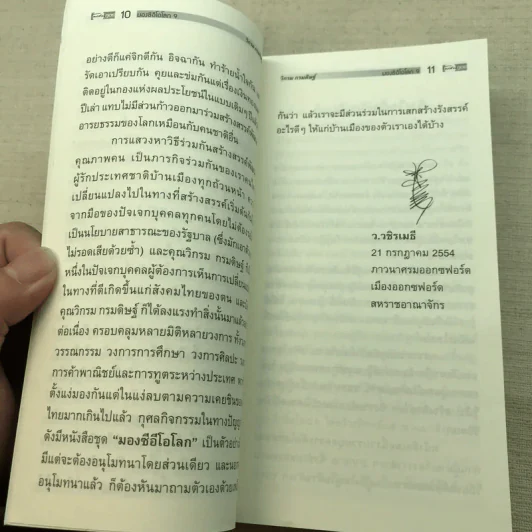 10 มองซีอีโอโลก 9
อย่างดีก็แค่จิกตีกัน อิจฉากัน ทำร้ายน้ำใจกัน
รัดเอาเปรียบกัน คุยและข่มกันแต่เรื่องเงิน
ติดอยู่ในกองแห่งผลประโยชน์ในแบบเดิมๆ
ปีเล่า แทบไม่มีส่วนก้าวออกมาร่วมสร้างสรรค์
อารยธรรมของโลกเหมือนกับคนชาติอื่น
การแสวงหาวิธีร่วมกันสร้างสรรค์
คุณภาพคน เป็นภารกิจร่วมกันของเรา
ผู้รักประเทศชาติบ้านเมืองทุกถ้วนหน้า
เปลี่ยนแปลงไปในทางที่สร้างสรรค์เริ่มต้น
จากมือของปัจเจกบุคคลทุกคนโดยไม่ต้อง
เป็นนโยบายสาธารณะของรัฐบาล (ซึ่งมัก
ไม่รอดเสียด้วยซ้ำ) และคุณวิกรม กรมดิษฐ์
หนึ่งในปัจเจกบุคคลผู้ต้องการเห็นการเปลี่ยน
ในทางที่ดีเกิดขึ้นแก่สังคมไทยของตน
คุณวิกรม กรมดิษฐ์ ก็ได้ลงแรงทำสิ่งนั้นมาแล้ว
ต่อเนื่อง ครอบคลุมหลายมิติหลายวงการ
วรรณกรรม วงการการศึกษา วงการศิลปะ
การค้าพาณิชย์และการทูตระหว่างประเทศ
ตั้งแง่มองกันแต่ในแง่ลบตามความเคยชิน
ไทยมากเกินไปแล้ว กุศลกิจกรรมในทางปัญญา
ดังมีหนังสือชุด “มองซีอีโอโลก” เป็นตัวอย่าง
มีแต่จะต้องอนุโมทนาโดยส่วนเดียว และ
อนุโมทนาแล้ว ก็ต้องหันมาถามตัวเองด้วย
วิกรม กรมดิษฐ์ มองซีอีโอโลก 9 11
กันว่า แล้วเราจะมีส่วนร่วมในการเสกสร้างรังสรรค์
อะไรดีๆ ให้แก่บ้านเมืองของตัวเราเองได้บ้าง
ว.วชิรเมธี
21 กรกฎาคม 2554
ภาวนาศรมออกซฟอร์ด
เมืองออกซฟอร์ด
สหราชอาณาจักร